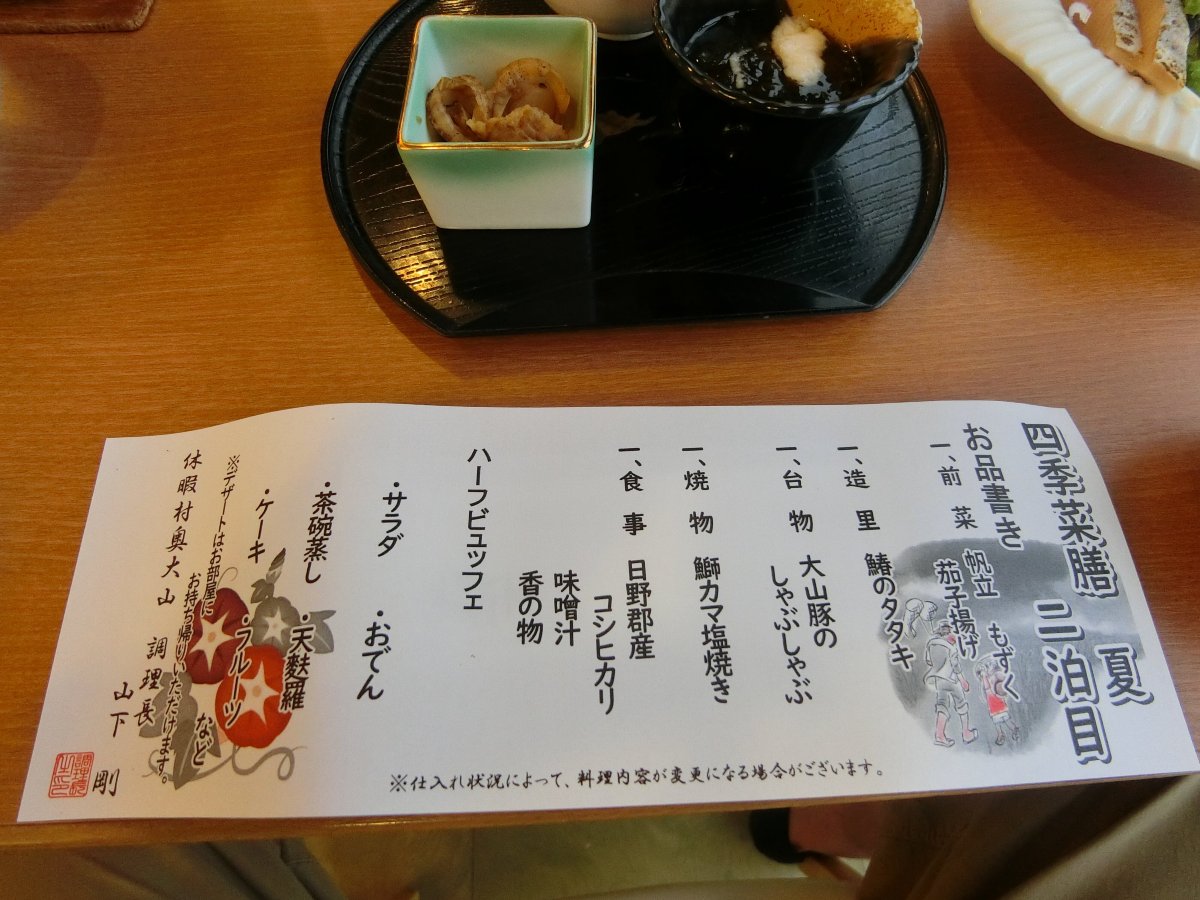 四季菜膳 夏
二泊目
お品書き
一、前菜 帆立 もずく
茄子揚げ
一、造里 鰆のタタキ
一、台物 大山豚の
しゃぶしゃぶ
一、焼物 鰤カマ塩焼き
一、食事 日野郡産
コシヒカリ
味噌汁
香の物
ハーフビュッフェ
・サラダ ・おでん
・茶碗蒸し ・天麩羅
・ケーキ ・フルーツ
など
※デザートはお部屋に
お持ち帰りいただけます。
休暇村奥大山 調理長
山下 剛
※仕入れ状況によって、料理内容が変更になる場合がございます。